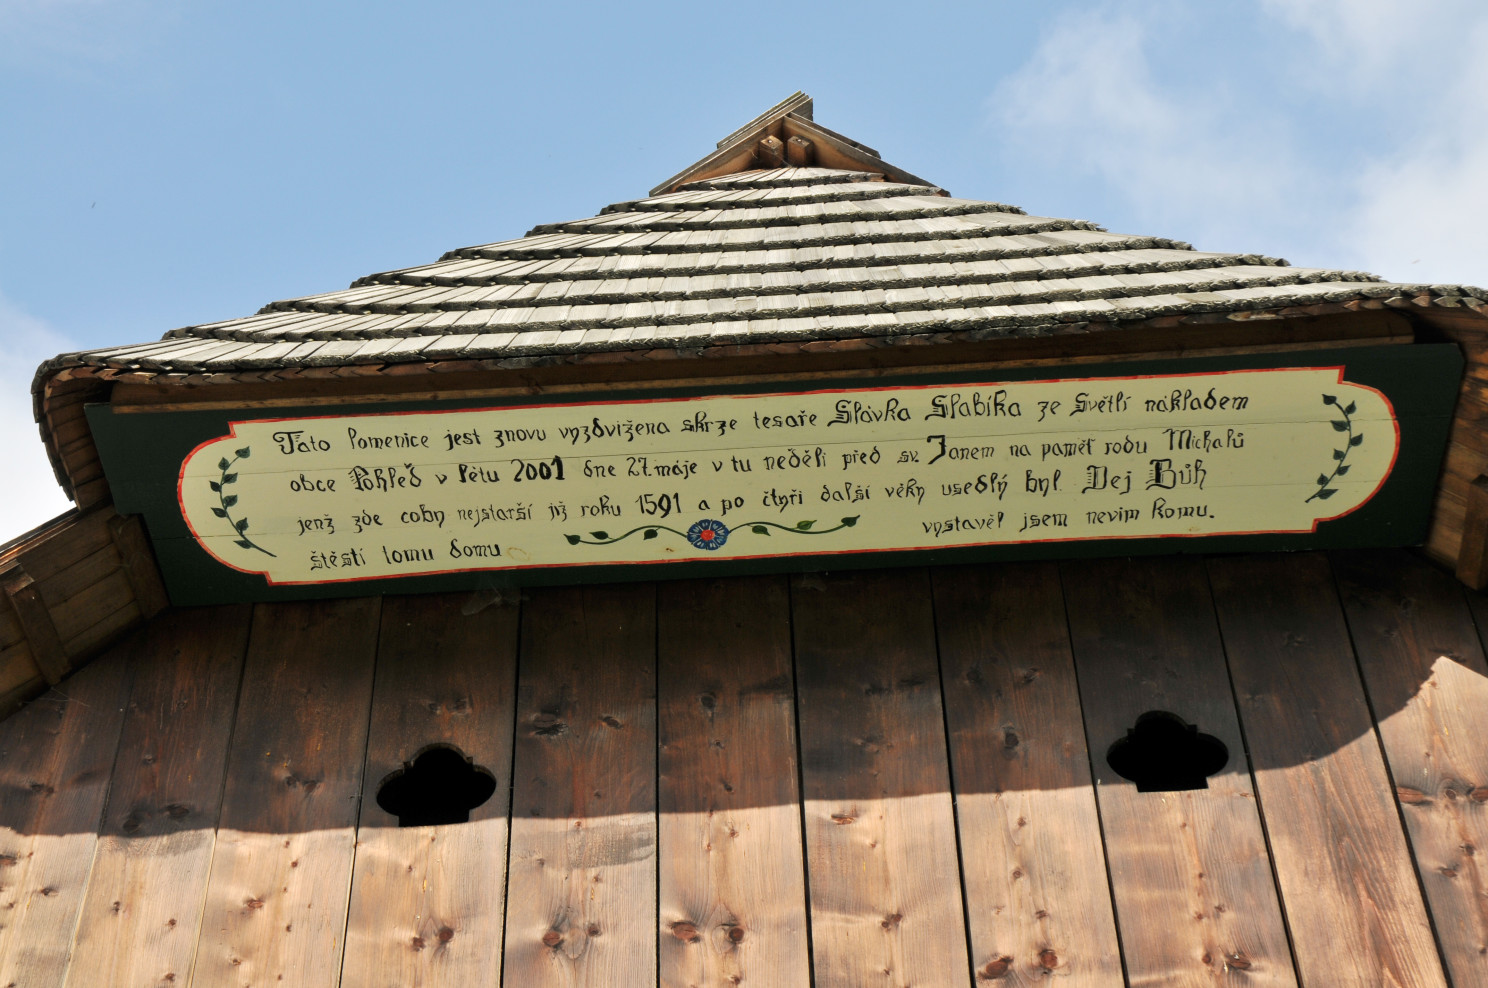 Tato lomenice jest znovu vyzdvižena skrze tesaře Slávka Slabíka ze Světlí nákladem
obce Pohleď v létu 2001 dne 27.máje v tu neděli před sv. Janem na paměť rodu Michalů
jenž zde coby nejstarší již roku 1591 a po čtyři další věky usedlý byl. Dej Bůh
štěstí tomu domu vystavěl jsem nevim komu.